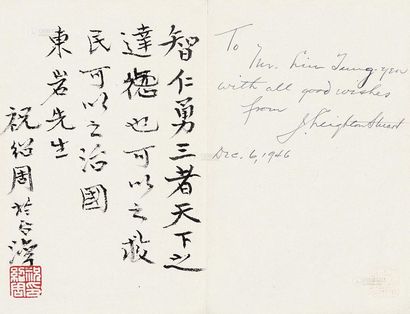 智仁勇三者天下之
達德也可以之救
民可以之治國
東岩先生
祝紹周於台
To
Mr. Lin Tung-yen
with all good wishes
from
J. Leighton Stuart
Dec. 6, 1946